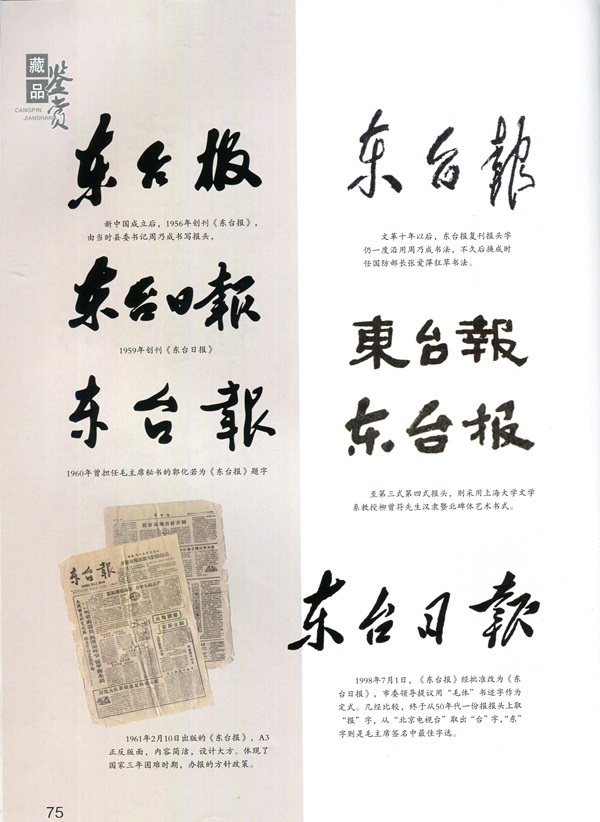 藏品
鉴赏
CANGPIN
JIANSHANG
东台报
新中国成立后，1956年创刊《东台报》，
由当时县委书记周乃成书写报头，
东台日報
1959年创刊《东台日报》
东台報
1960年曾担任毛主席秘书的郭化若为《东台报》题字
东台報
1961年2月10日出版的《东台报》，A3
正反版面，内容简洁，设计大方。体现了
国家三年困难时期，办报的方针政策。
75
东台報
文革十年以后，东台报复刊报头字
仍一度沿用周乃成书法，不久后换成时
任国防部长张爱萍狂草书法。
東台報
东台报
至第三式第四式报头，则采用上海大学文学
系教授柳曾符先生汉隶暨北碑体艺术书式。
东台日報
1998年7月1日，《东台报》经批准改为《东
台日报》，市委领导提议用“毛体”书迹字作为
定式。几经比较，终于从50年代一份报报头上取
“报”字，从“北京电视台”取出“台”字，“东”
字则是毛主席签名中最佳字选。